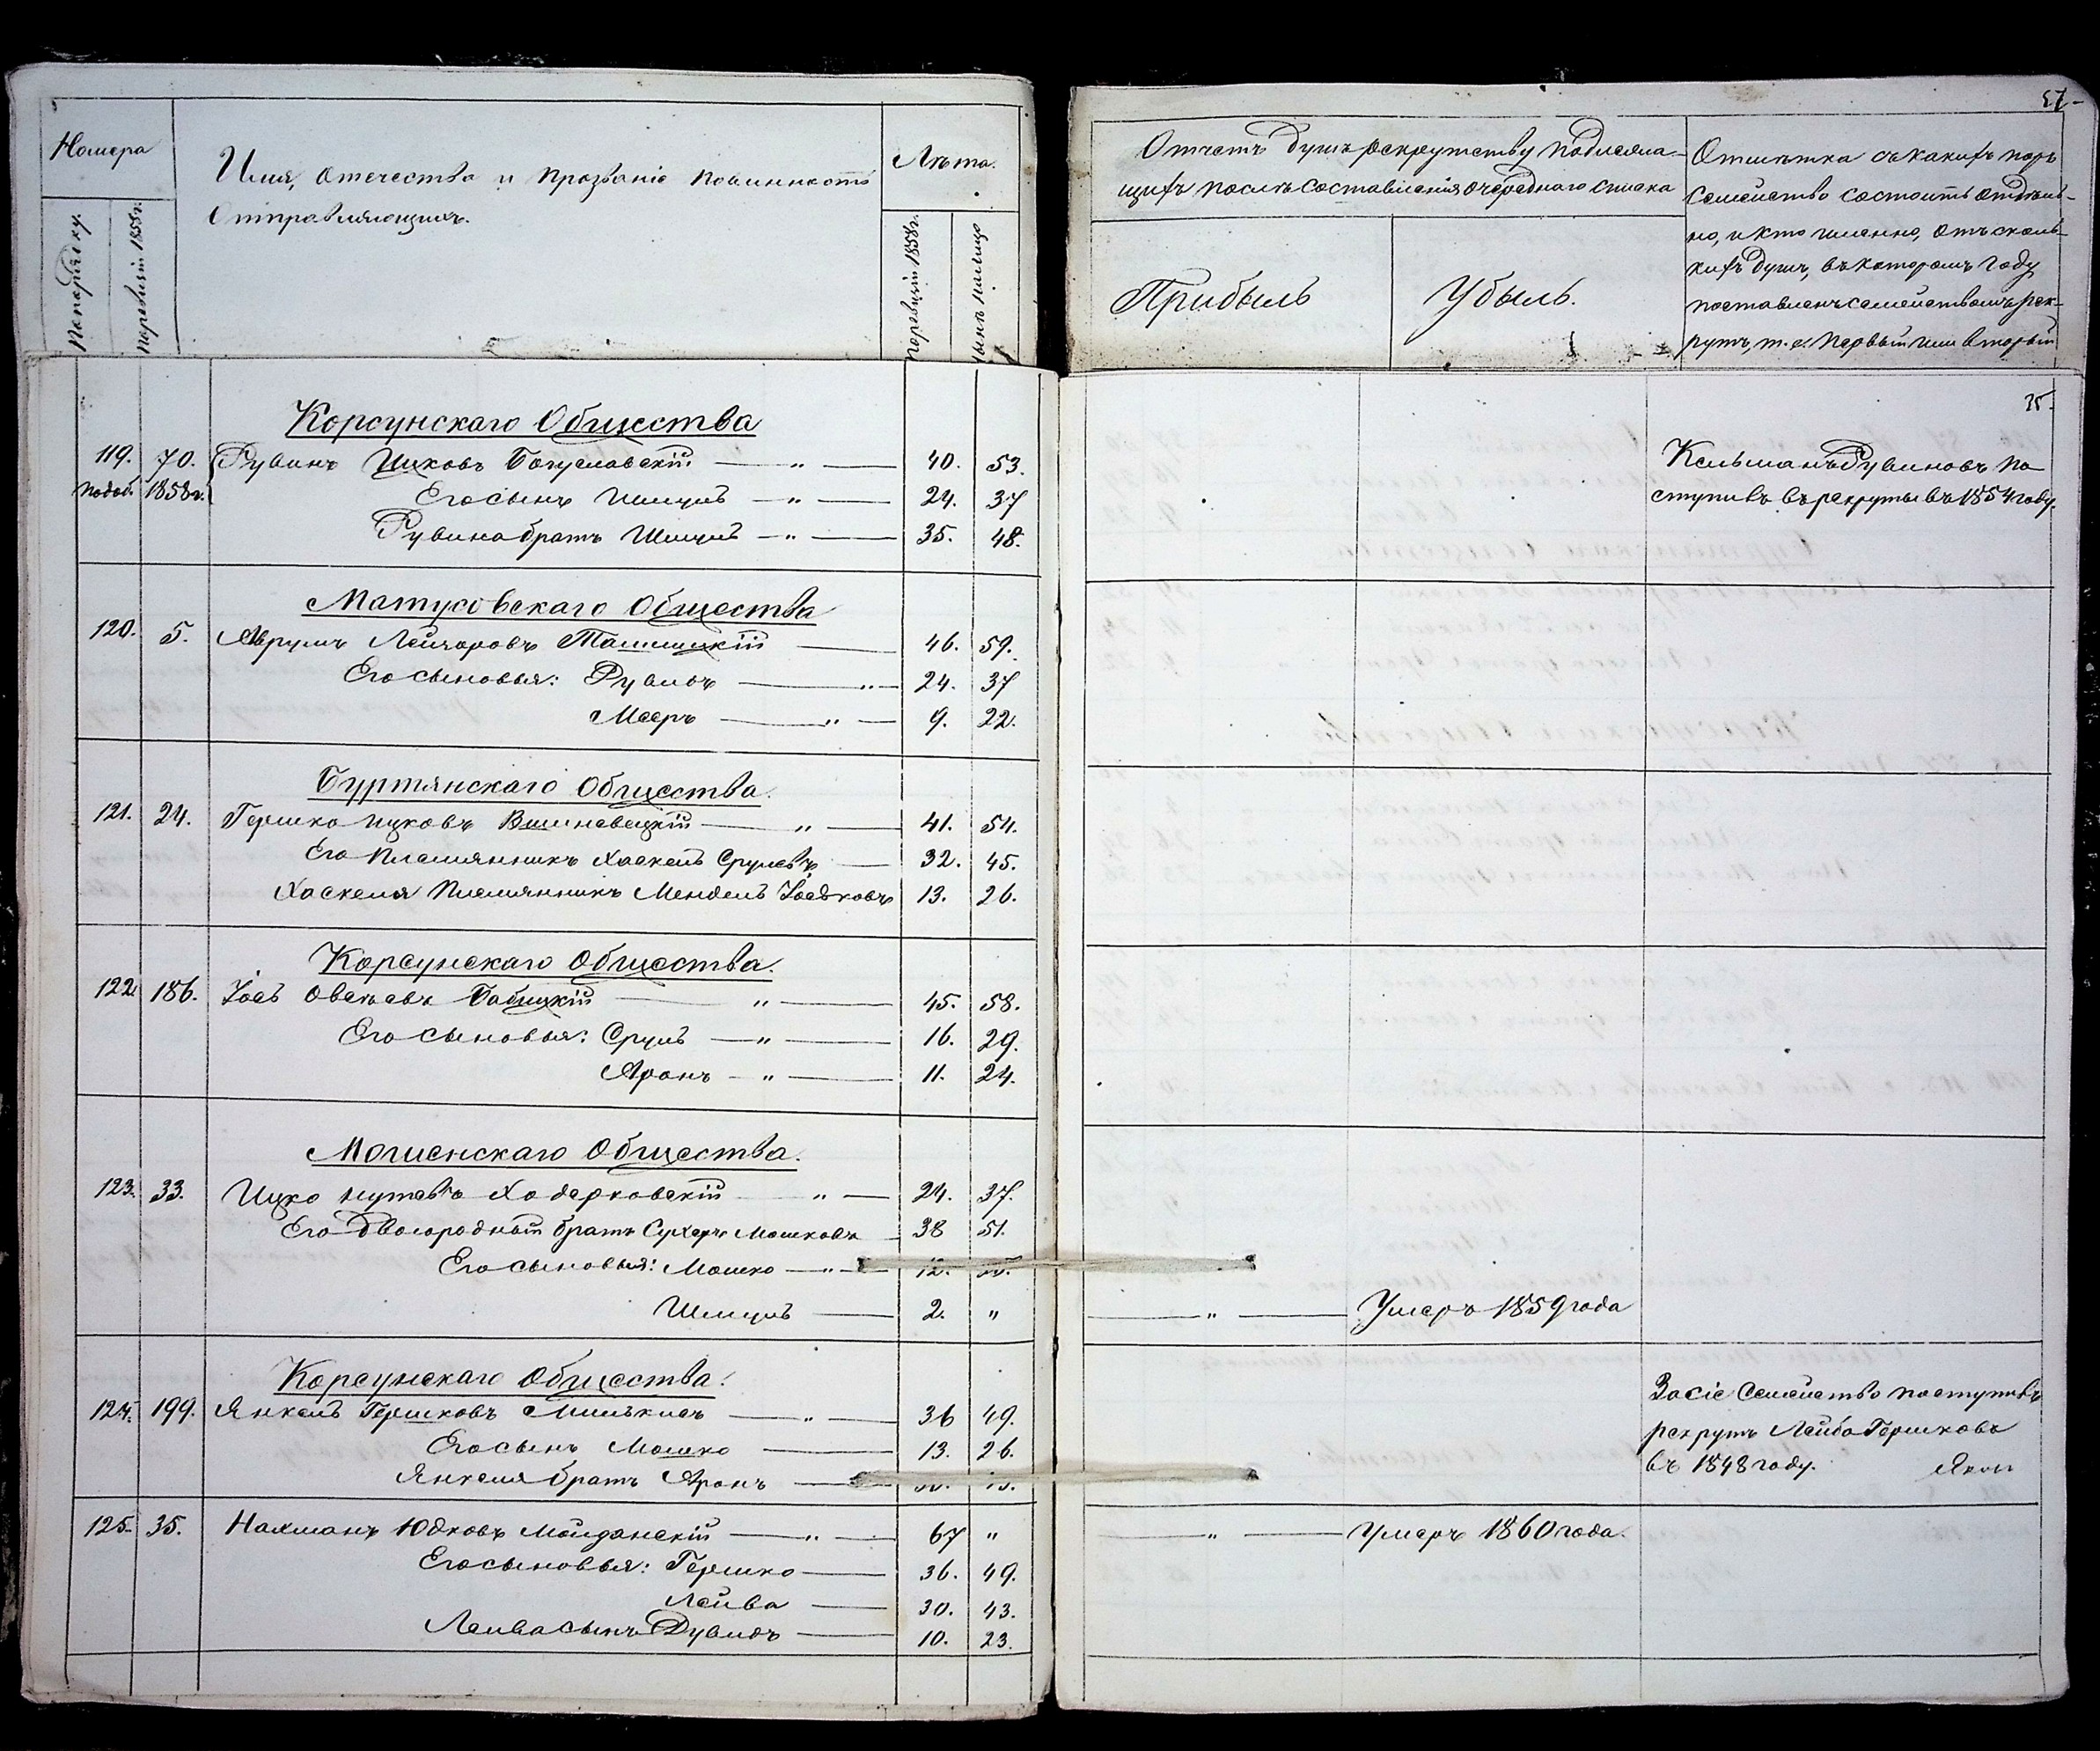 Номера
Имя, отечество и прозваніе повинность
Отправляющихъ.
Лѣта.
По порядку.
По ревизіи 1858 г.
По ревизіи 1858 г.
нынѣ на лицо
Корсунскаго Общества
119. 70. Рувинъ Ицковъ Богуславскій — " — 40. 53.
1858 г. Его сынъ Шмуль — " — 24. 37
Рувина братъ Шмуль — " — 35. 48.
Матусовскаго Общества
120. 5. Аврумъ Лейзоровъ — 46. 59.
Его сыновья: Рувинъ — " — 24. 37
Мееръ — " — 9. 22.
Буртянскаго Общества.
121. 24. Гершко Ицковъ Вишневецкій — " — 41. 54.
Его племянникъ Хаскель Срулевъ — 32. 45.
Хаскеля племянникъ Мендель Іоськовъ 13. 26.
Корсунскаго Общества.
122. 186. Іось Овсеевъ Бабицкій — " — 45. 58.
Его сыновья: Сруль — " — 16. 29.
Аронъ — " — 11. 24.
Мошенскаго Общества.
123. 33. Ицко Нутевъ Ходорковскій " — 24. 37.
Его двоюродный братъ Сухеръ Мошковъ — 38 51.
Его сыновья: Мошко — " — 12.
Шмуль — 2. "
Корсунскаго Общества.
124. 199. Янкель Гершковъ — " — 36 49.
Его сынъ Мошко — 13. 26.
Янкеля братъ Аронъ —
125. 35. Нахманъ Юдковъ Мойданскій — " — 67 "
Его сыновья: Гершко — 36. 49.
Лейба — 30. 43.
Лейба сынъ Дувидъ — 10. 23.
57.
Отчетъ душъ рекрутству подлежа-
щихъ послѣ составленія очереднаго списка
Прибыль
Убыль.
Отмѣтка съ какихъ поръ
семейство состоитъ отдѣль-
но, и кто именно, отъ сколь-
кихъ душъ, въ которомъ году
поставленъ семействомъ рек-
рутъ, т. е. первый или вторый
35.
Кельманъ Рувиновъ по
ступивъ въ рекруты въ 1854 году.
— " — Умеръ 1859 года
За сіе семейство поступивъ
рекрутъ Лейба Гершковъ
въ 1848 году.
— " — Умеръ 1860 года.